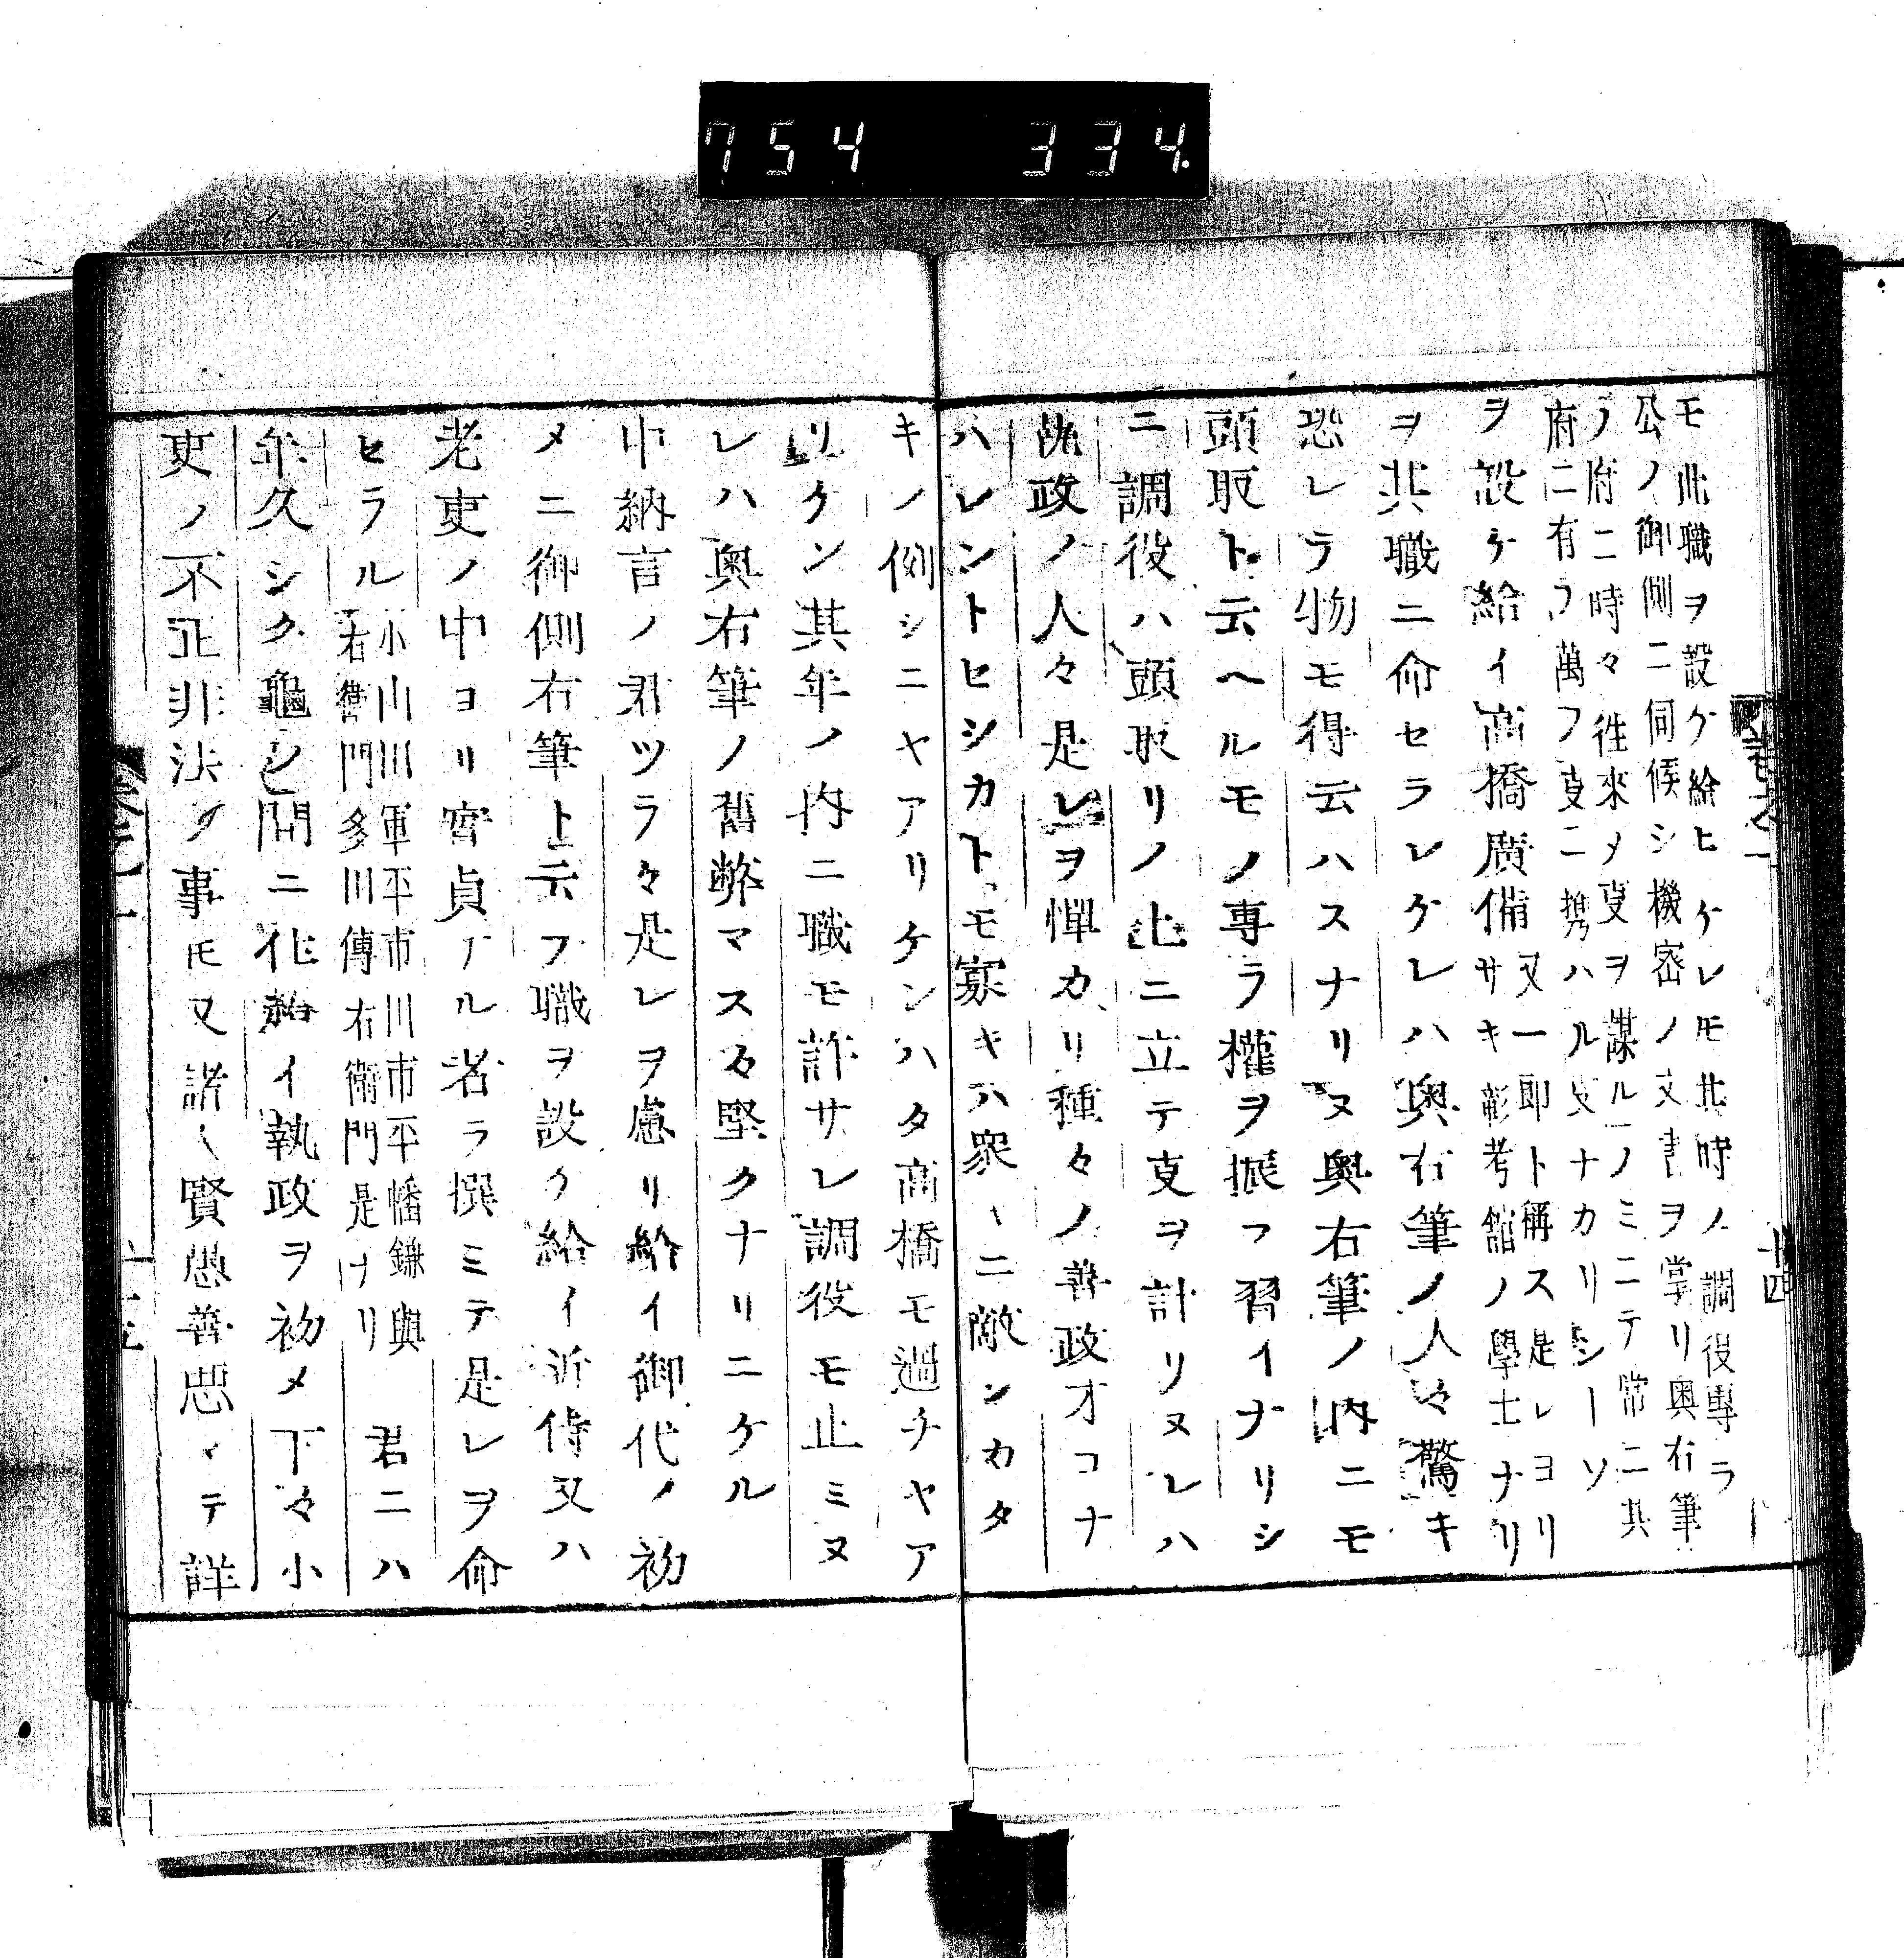 754 334
モ此職ヲ設ケ給ヒケレモ其時ノ調役專ラ
公ノ御側ニ伺候シ機密ノ文書ヲ掌リ奥右筆
ノ府ニ時々往來メ叓ヲ謀ルノミニテ常ニ其
府ニ有ラ萬フ叓ニ携ハル叓ナカリシーソ
ヲ設ケ給イ高橋廣備又一郎ト稱ス是レヨリサキ彰考舘ノ學士ナリ
ヲ其職ニ命セラレケレハ奥右筆ノ人々驚キ
恐レラ物モ得云ハスナリヌ奥右筆ノ内ニモ
頭取ト云ヘルモノ專ラ權ヲ振フ習イナリシ
ニ調役ハ頭取リノ上ニ立テ叓ヲ計リヌレハ
執政ノ人々是レヲ憚カリ種々ノ善政オコナ
ハレントセシカトモ寡キハ衆キニ敵シカタ
キノ例シニヤアリケンハタ高橋モ過チヤア
リケン其年ノ内ニ職モ許サレ調役モ止ミヌ
レハ奥右筆ノ舊弊マスタ堅クナリニケル
中納言ノ君ツラ々是レヲ慮リ給イ御代ノ初
メニ御側右筆ト云フ職ヲ設ケ給イ近侍又ハ
老吏ノ中ヨリ實貞ナル者ラ撰ミテ是レヲ命
ヒラル小山川軍平市川市平幡鎌與右衛門多川傳右衛門是ナリ 君ニハ
年久シク龜シ間ニ化給イ執政ヲ初メ下々小
吏ノ不正非法ノ事モ又諸人賢愚善悪マテ詳
十四